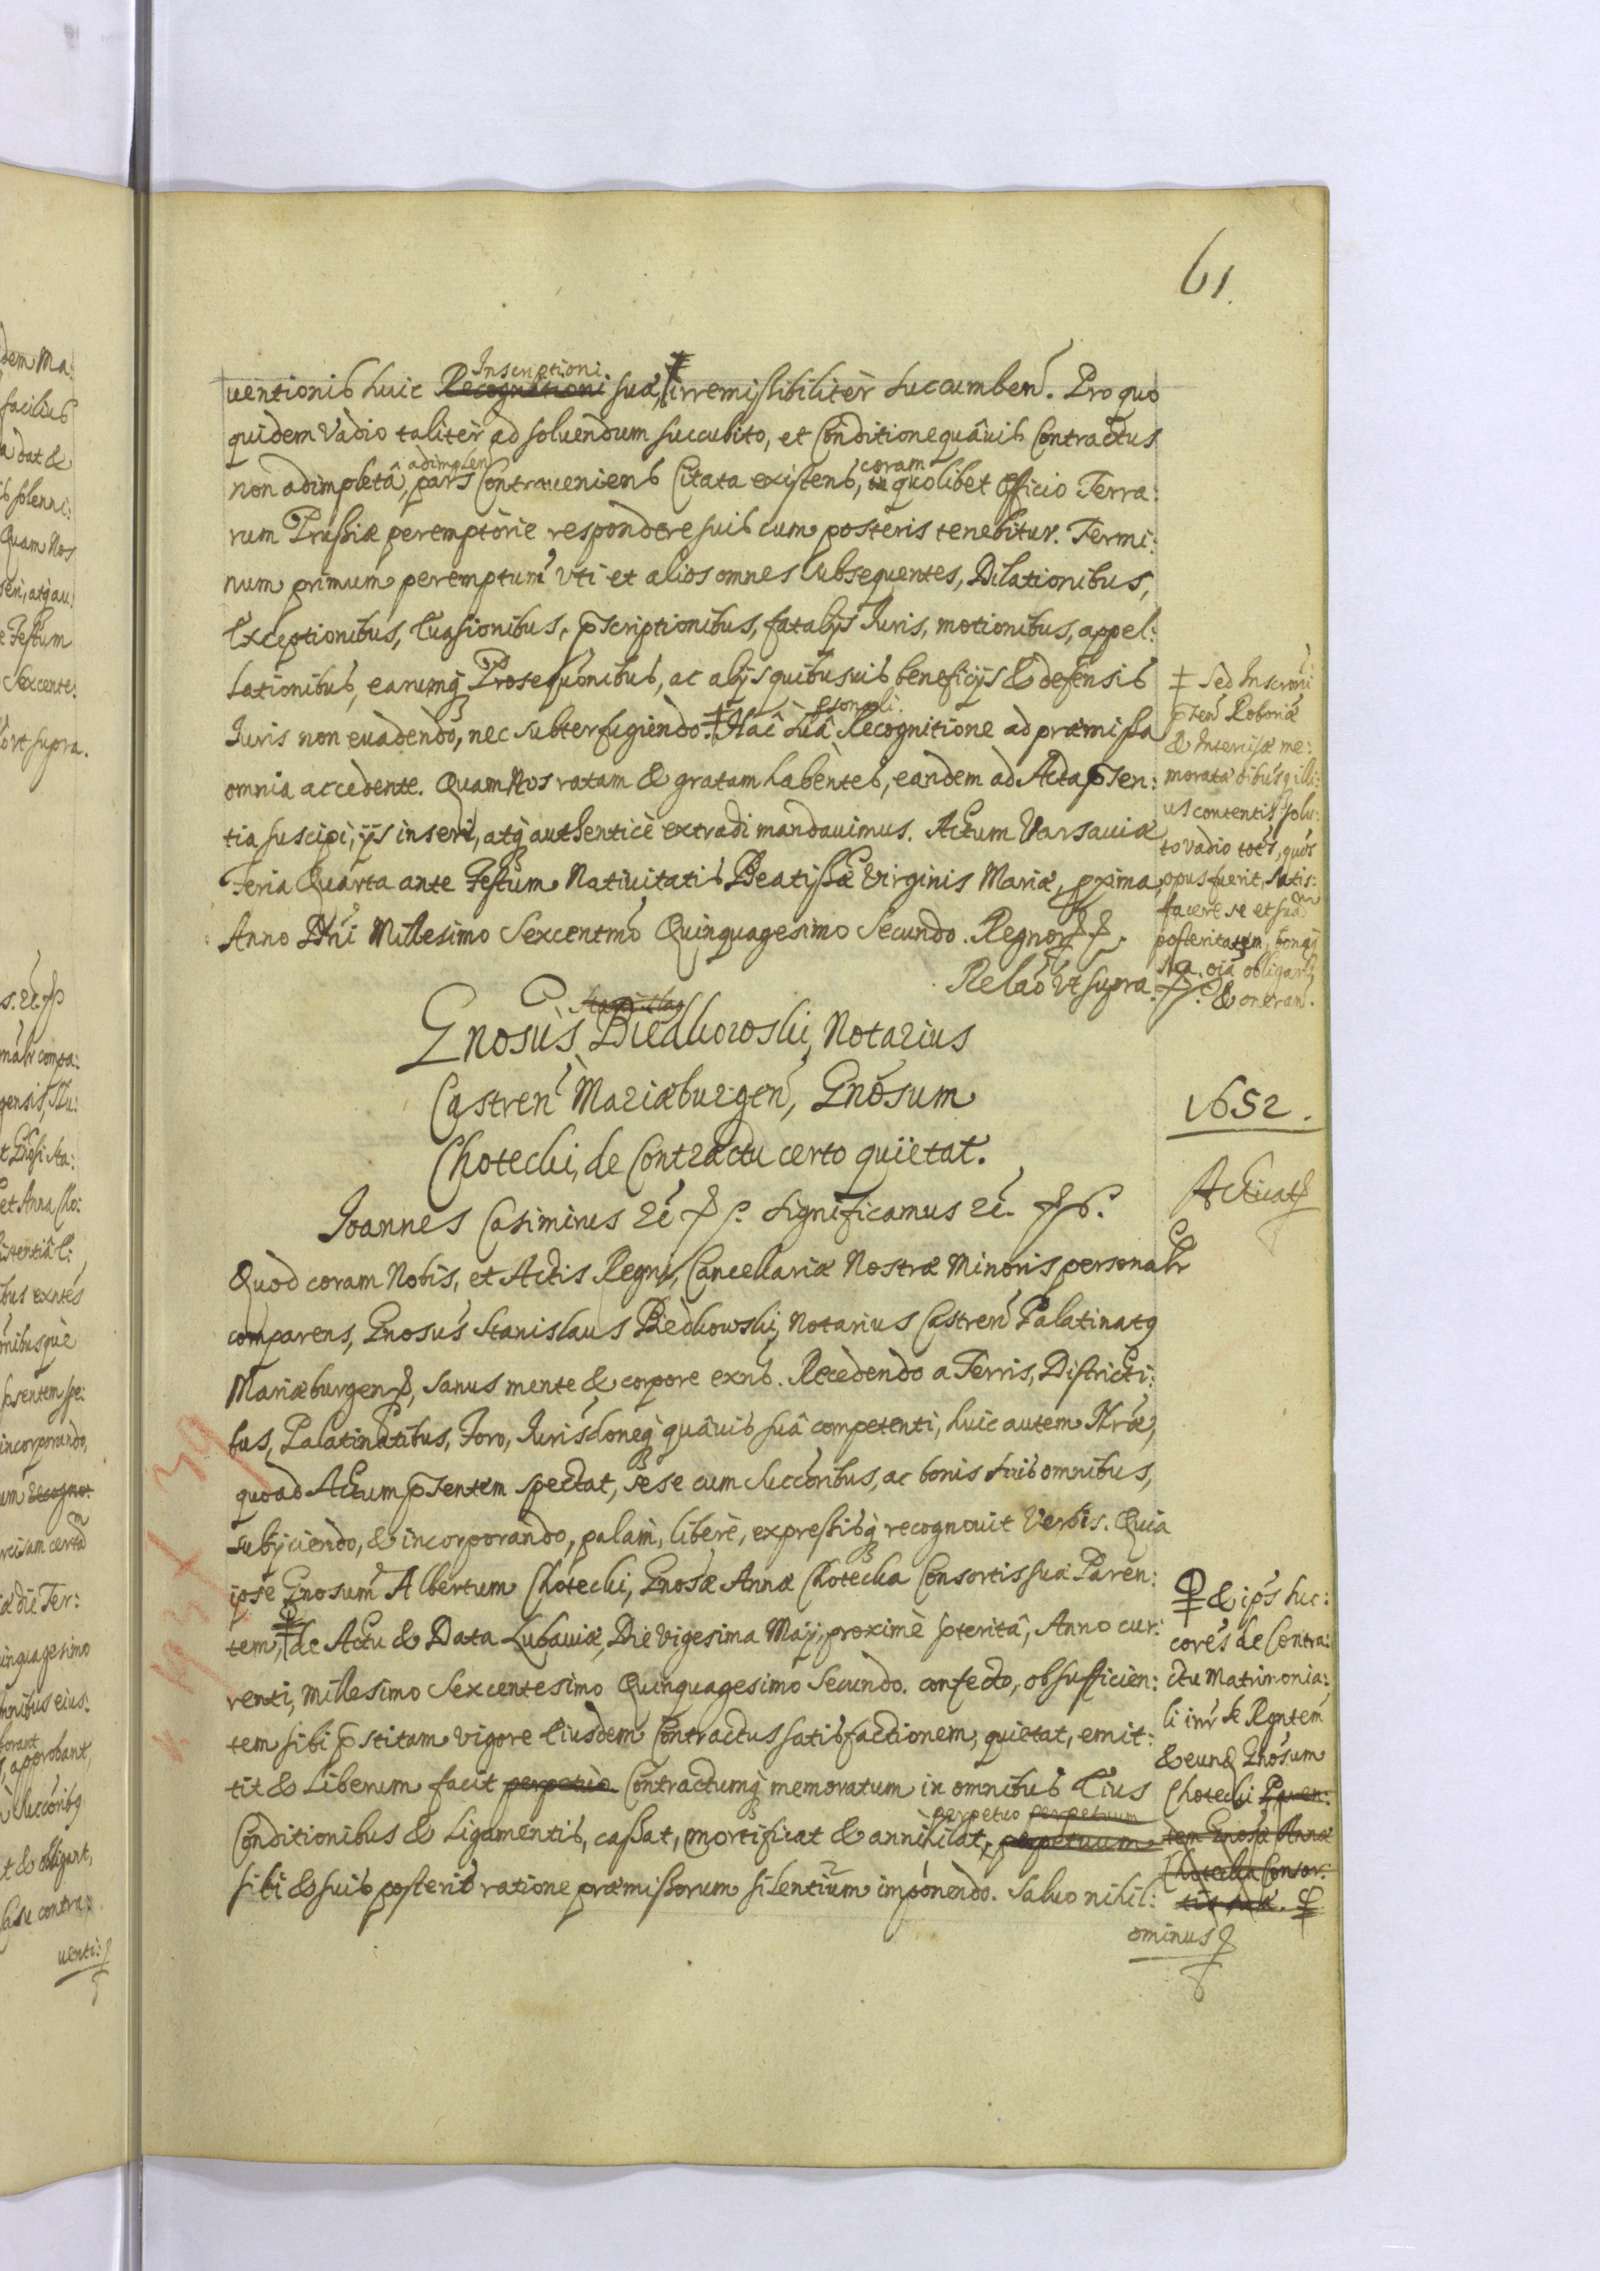 61.
Inscriptioni
uentionis huic Recognitioni suæ, irremissibiliter succumben. Pro quo
quidem Vadio taliter ad soluendum succubito, et Conditione quâuis Contractus
adimplen coram
non adimpletâ, pars Contraueniens Citata existens, in quolibet Officio Terra:
rum Prussiæ peremptorie respondere suis cum posteris tenebitur. Termi:
num primum peremptum Vti et alios omnes subsequentes, Dilationibus,
Exceptionibus, Euasionibus, pscriptionibus, fatalijs Iuris, motionibus, appel:
lationibus, earumq Prosequonibus, ac alijs quibusuis beneficijs & defensis
psonali
Iuris non euadendo, nec subterfugiendo. ‡ Hac suâ Recognitione ad præmissa
omnia accedente. Quam Nos ratam & gratam habentes, eandem ad Acta psen:
tia suscipi, ijs inseri, atq authentice extradi mandauimus. Actum Varsauiæ
Feria Quarta ante Festum Natiuitatis Beatissæ Virginis Mariæ, pxima,
Anno Dni Millesimo Sexcentmo Quinquagesimo Secundo. Regnor
Relao vt supra.
‡ Sed Inscroni
psen Roboriæ
& Intercisæ me:
morata dibusq illi:
us contentis solu:
to vadio toties, quos
opus fuerit, satis:
facere se et suam
posteritatem, bonaq
sua oia obligan
& oneran.
Gnosus Biedkowski, Notarius
Castren Mariæburgen, Gnosum
Chotecki, de Contractu certo quietat.
1652.
Acticat
Ioannes Casimirus &c. significamus &c.
Quod coram Nobis, et Actis Regni, Cancellariæ Nostræ Minoris personalr
comparens, Gnosus Stanislaus Biedkowski, Notarius Castren Palatinatq
Mariæburgen, sanus mente & corpore exns. Recedendo a Terris, Districti:
bus, Palatinatibus, Foro, Iurisdoneq quâuis suâ competenti, huic autem Nræ,
quoad Actum psentem spectat, sese cum succoribus, ac bonis suis omnibus,
subijciendo, & incorporando, palam, libere, expressisq recognouit Verbis. Quia
ipse Gnosum Albertum Chotecki, Gnosæ Annæ Chotecka Consortis suæ Paren:
tem, de Actu & Data Lubauiæ, Die vigesima Maij, proxime pterita, Anno cur:
renti, Millesimo Sexcentesimo Quinquagesimo Secundo. confecto, ob sufficien:
tem sibi pstitam vigore Eiusdem Contractus satisfactionem, quietat, emit:
tit & Liberum facit perpetuo Contractumq memoratum in omnibus Eius
perpetuo perpetuum
Conditionibus & Ligamentis, cassat, mortificat & annihilat, perpetuum
sibi & suis posteris ratione præmissorum silentium imponendo. Saluo nihil:
ominus
& ipos suc:
cores de Contra:
ctu Matrimonia:
li inr se Rgntem
& eund Gnosum
Chotecki Paren:
tem Gnosæ Annæ
Chotecka Consor:
tis suæ.